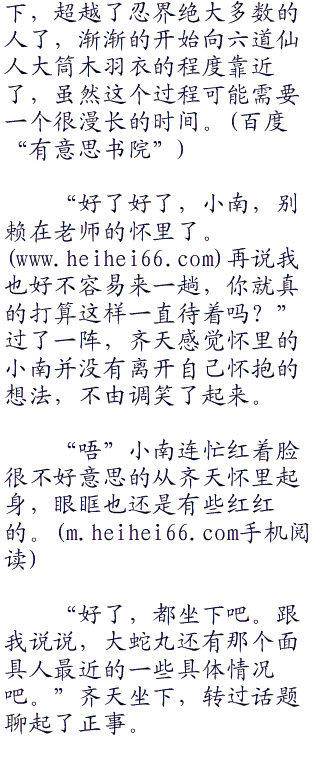 下，超越了忍界绝大多数的
人了，渐渐的开始向六道仙
人大筒木羽衣的程度靠近
了，虽然这个过程可能需要
一个很漫长的时间。(百度
“有意思书院”)
“好了好了，小南，别
赖在老师的怀里了。
(www.heihei66.com)再说我
也好不容易来一趟，你就真
的打算这样一直待着吗？”
过了一阵，齐天感觉怀里的
小南并没有离开自己怀抱的
想法，不由调笑了起来。
“唔”小南连忙红着脸
很不好意思的从齐天怀里起
身，眼眶也还是有些红红
的。(m.heihei66.com手机阅
读)
“好了，都坐下吧。跟
我说说，大蛇丸还有那个面
具人最近的一些具体情况
吧。”齐天坐下，转过话题
聊起了正事。